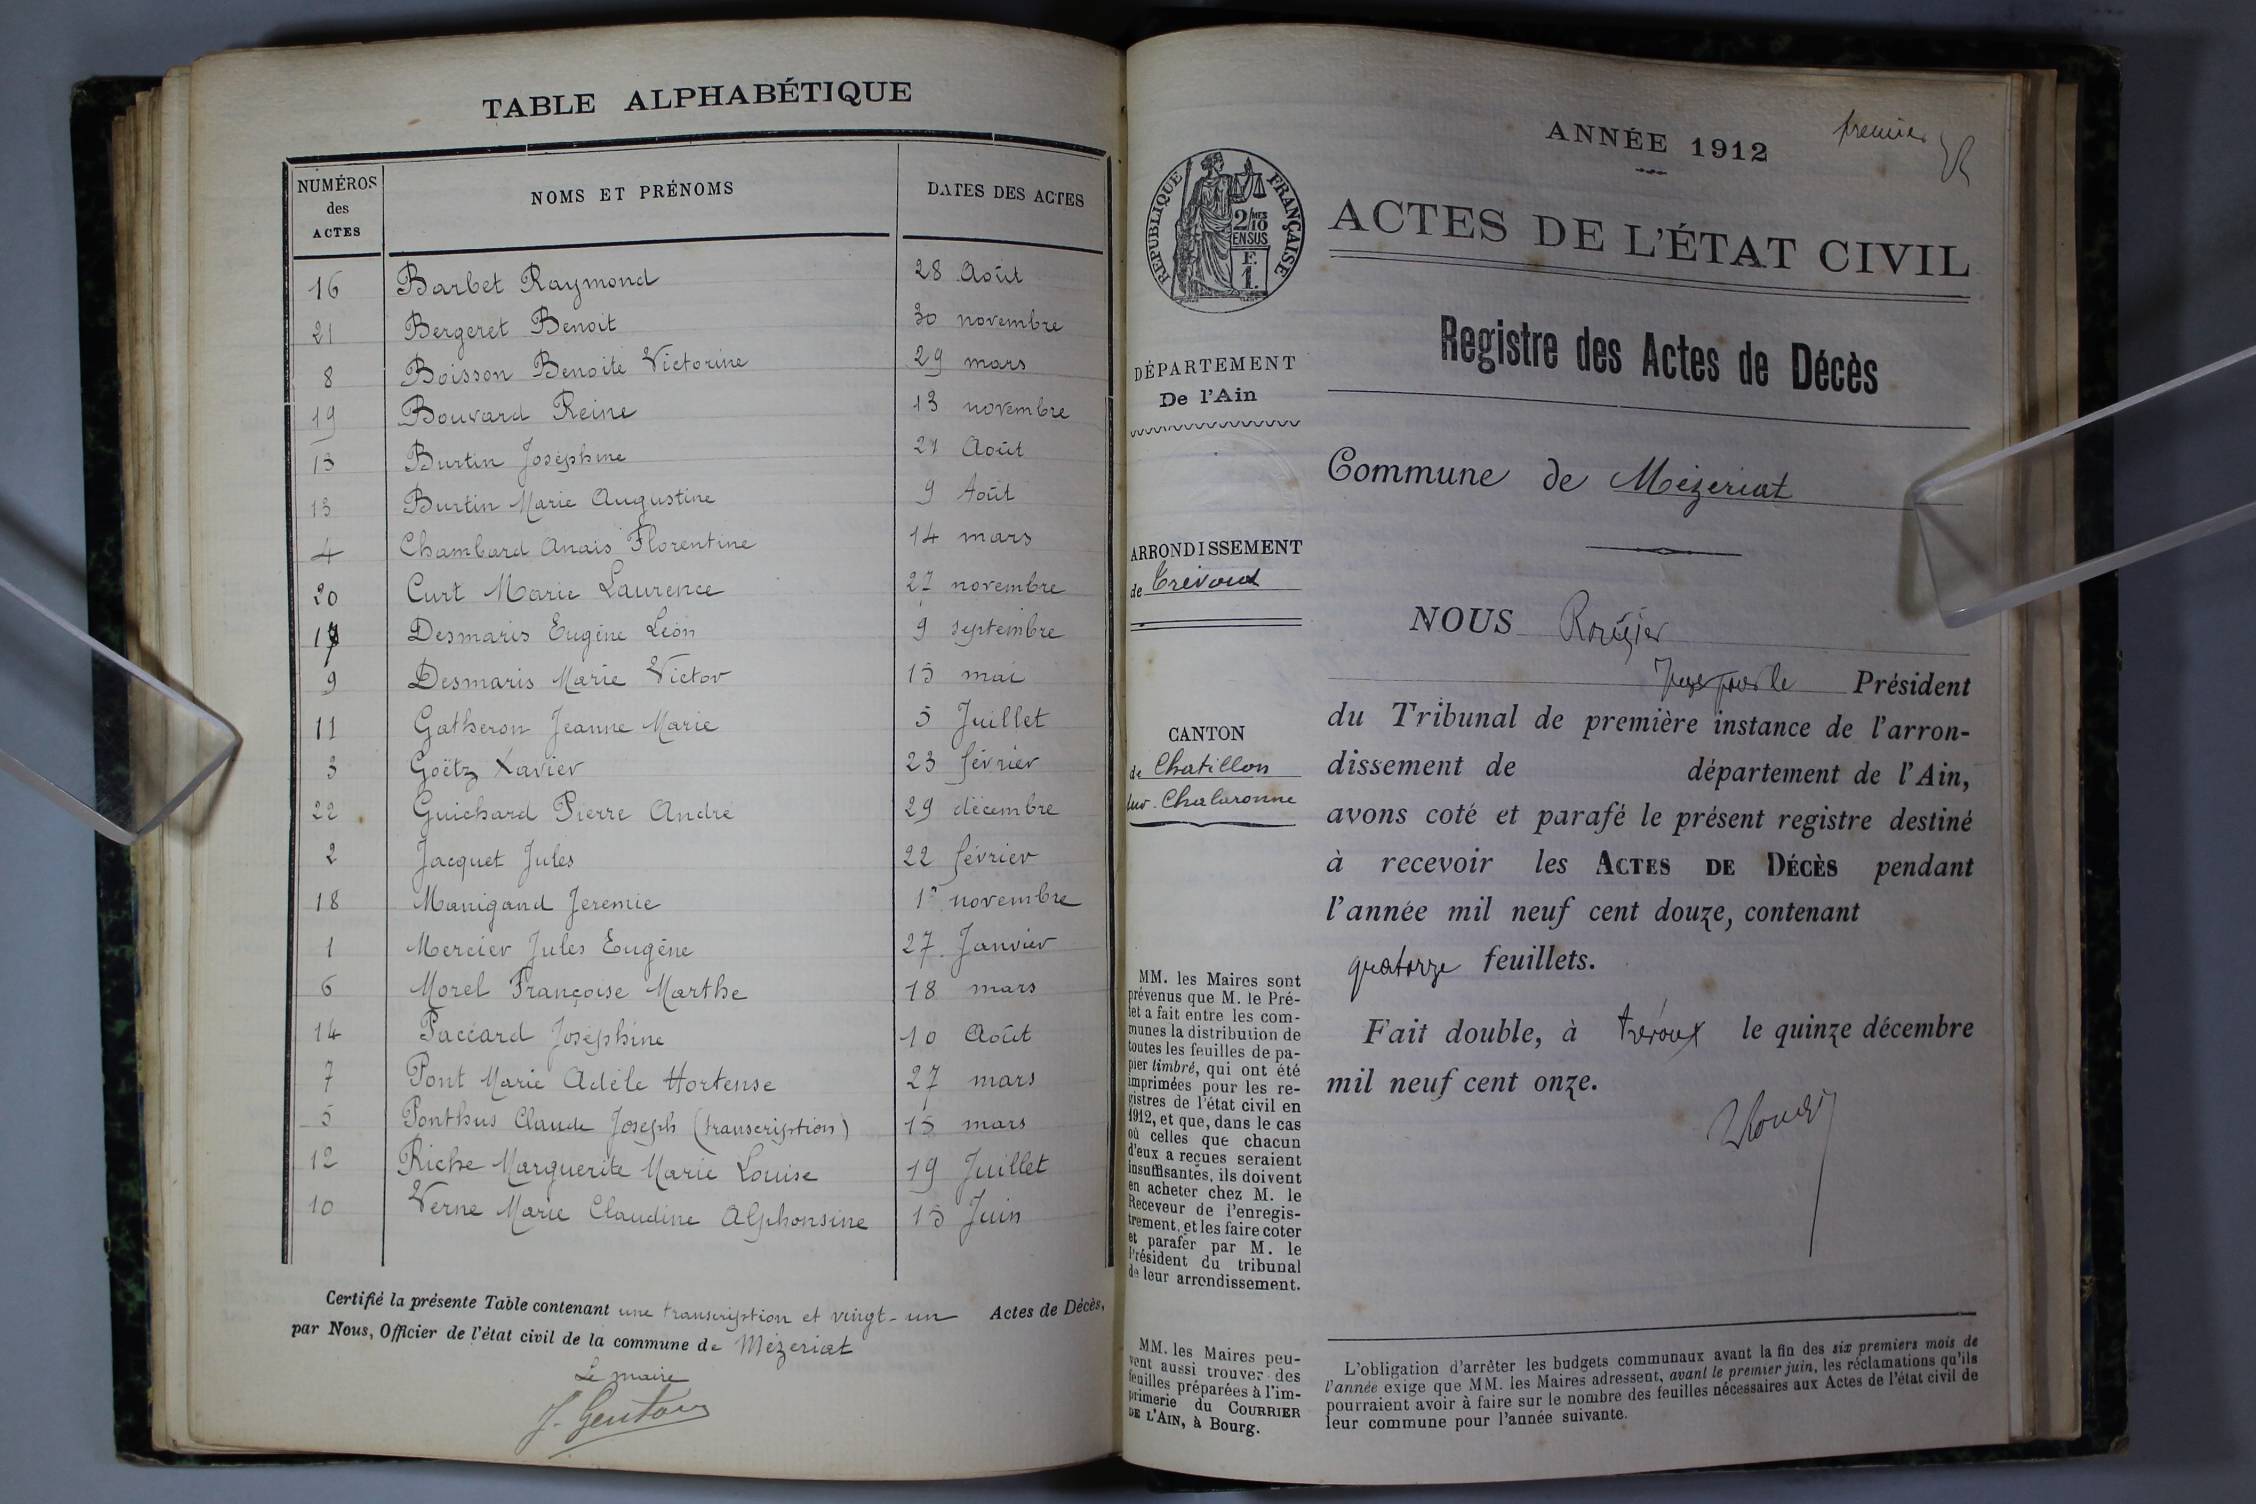 TABLE ALPHABÉTIQUE
NUMÉROS des ACTES NOMS ET PRÉNOMS DATES DES ACTES
16 Barbet Raymond 28 Août
21 Bergeret Benoit 30 novembre
8 Boisson Benoite Victorine 29 mars
19 Bouvard Reine 13 novembre
15 Burtin Joséphine 21 Août
13 Burtin Marie Augustine 9 Août
4 Chambard Anais Florentine 14 mars
20 Curt Marie Laurence 27 novembre
17 Desmaris Eugène Léon 9 septembre
9 Desmaris Marie Victor 15 mai
11 Gatheron Jeanne Marie 5 Juillet
3 Goëtz Xavier 23 février
22 Guichard Pierre André 29 décembre
2 Jacquet Jules 22 février
18 Manigand Jeremie 1r novembre
1 Mercier Jules Eugène 27 Janvier
6 Morel Françoise Marthe 18 mars
14 Paccard Joséphine 10 Août
7 Pont Marie Adèle Hortense 27 mars
5 Ponthus Claude Joseph (transcription) 15 mars
12 Riche Marguerite Marie Louise 19 Juillet
10 Verne Marie Claudine Alphonsine 15 Juin
Certifié la présente Table contenant une transcription et vingt-un Actes de Décès,
par Nous, Officier de l'état civil de la commune de Mézeriat
Le maire
J. Genton
premier
ANNÉE 1912
ACTES DE L'ÉTAT CIVIL
RÉPUBLIQUE FRANÇAISE
2/10 MES
EN SUS
F.
1.
Registre des Actes de Décès
DÉPARTEMENT
De l'Ain
Commune de Mézeriat
ARRONDISSEMENT
de Trévoux
CANTON
de Chatillon
sur Chalaronne
NOUS Rougier
Président
du Tribunal de première instance de l'arron-
dissement de département de l'Ain,
avons coté et parafé le présent registre destiné
à recevoir les ACTES DE DÉCÈS pendant
l'année mil neuf cent douze, contenant
quatorze feuillets.
Fait double, à Trévoux le quinze décembre
mil neuf cent onze.
MM. les Maires sont
prévenus que M. le Pré-
fet a fait entre les com-
munes la distribution de
toutes les feuilles de pa-
pier timbré, qui ont été
imprimées pour les re-
gistres de l'état civil en
1912, et que, dans le cas
où celles que chacun
d'eux a reçues seraient
insuffisantes, ils doivent
en acheter chez M. le
Receveur de l'enregis-
trement, et les faire coter
et parafer par M. le
Président du tribunal
de leur arrondissement.
MM. les Maires peu-
vent aussi trouver des
feuilles préparées à l'im-
primerie du COURRIER
DE L'AIN, à Bourg.
L'obligation d'arrêter les budgets communaux avant la fin des six premiers mois de
l'année exige que MM. les Maires adressent, avant le premier juin, les réclamations qu'ils
pourraient avoir à faire sur le nombre des feuilles nécessaires aux Actes de l'état civil de
leur commune pour l'année suivante.